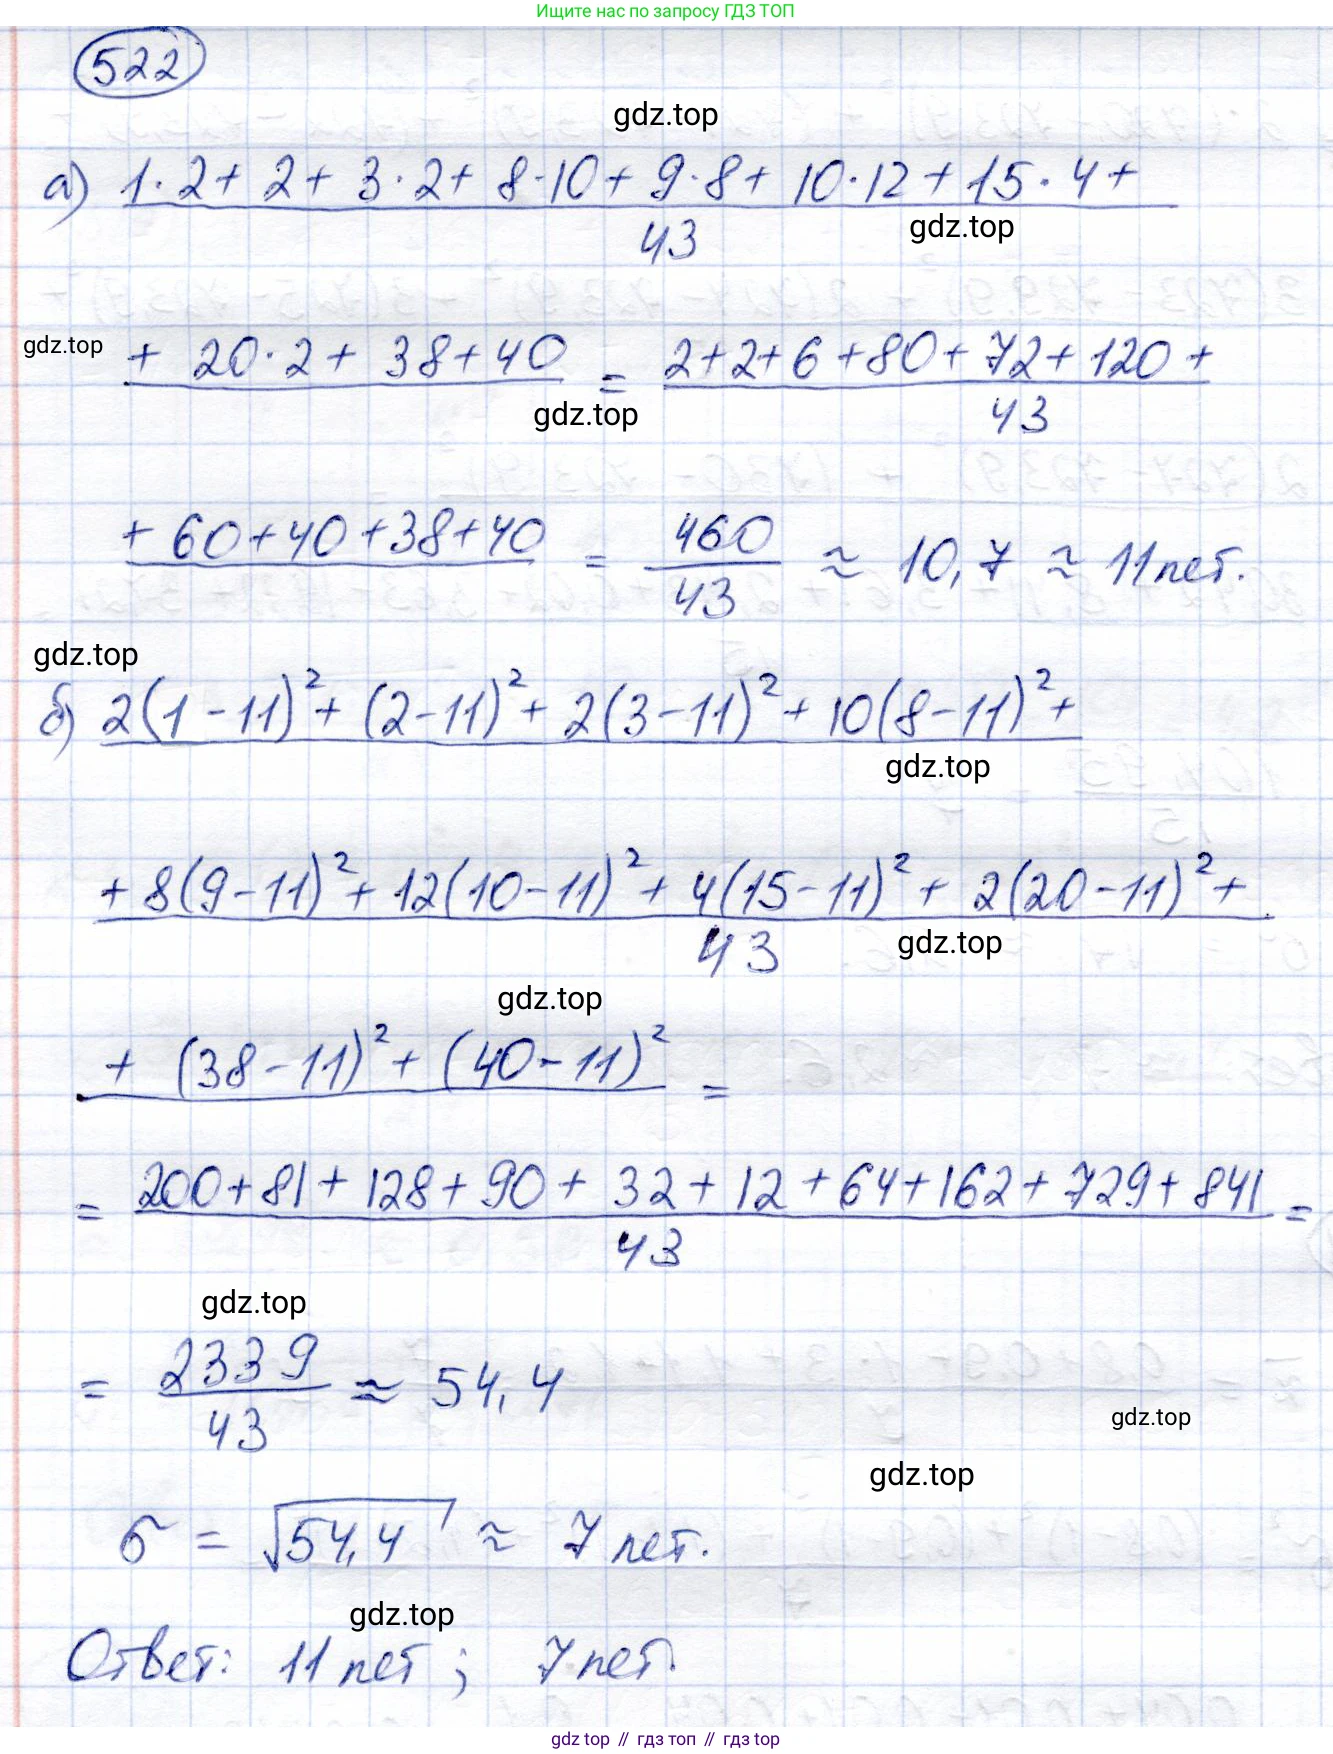 Ищите нас по запросу ГДЗ ТОП
522
gdz.top
а) 1·2+ 2+ 3·2+ 8·10+ 9·8+ 10·12+15·4+
43
gdz.top
gdz.top
+ 20·2+ 38+40 = 2+2+6+80+72+120+
43
gdz.top
+60+40+38+40 = 460/43 ≈ 10,7 ≈ 11 лет.
gdz.top
б) 2(1-11)²+ (2-11)²+ 2(3-11)²+ 10(8-11)²+
gdz.top
+8(9-11)²+ 12(10-11)²+ 4(15-11)²+ 2(20-11)²+
43
gdz.top
gdz.top
+ (38-11)²+ (40-11)² =
= 200+81+128+90+ 32+12+64+162+729+841 =
43
gdz.top
= 2339/43 ≈ 54,4
gdz.top
gdz.top
σ = √54,4 ≈ 7 лет.
gdz.top
Ответ: 11 лет; 7 лет.
gdz top // гдз топ // гдз top